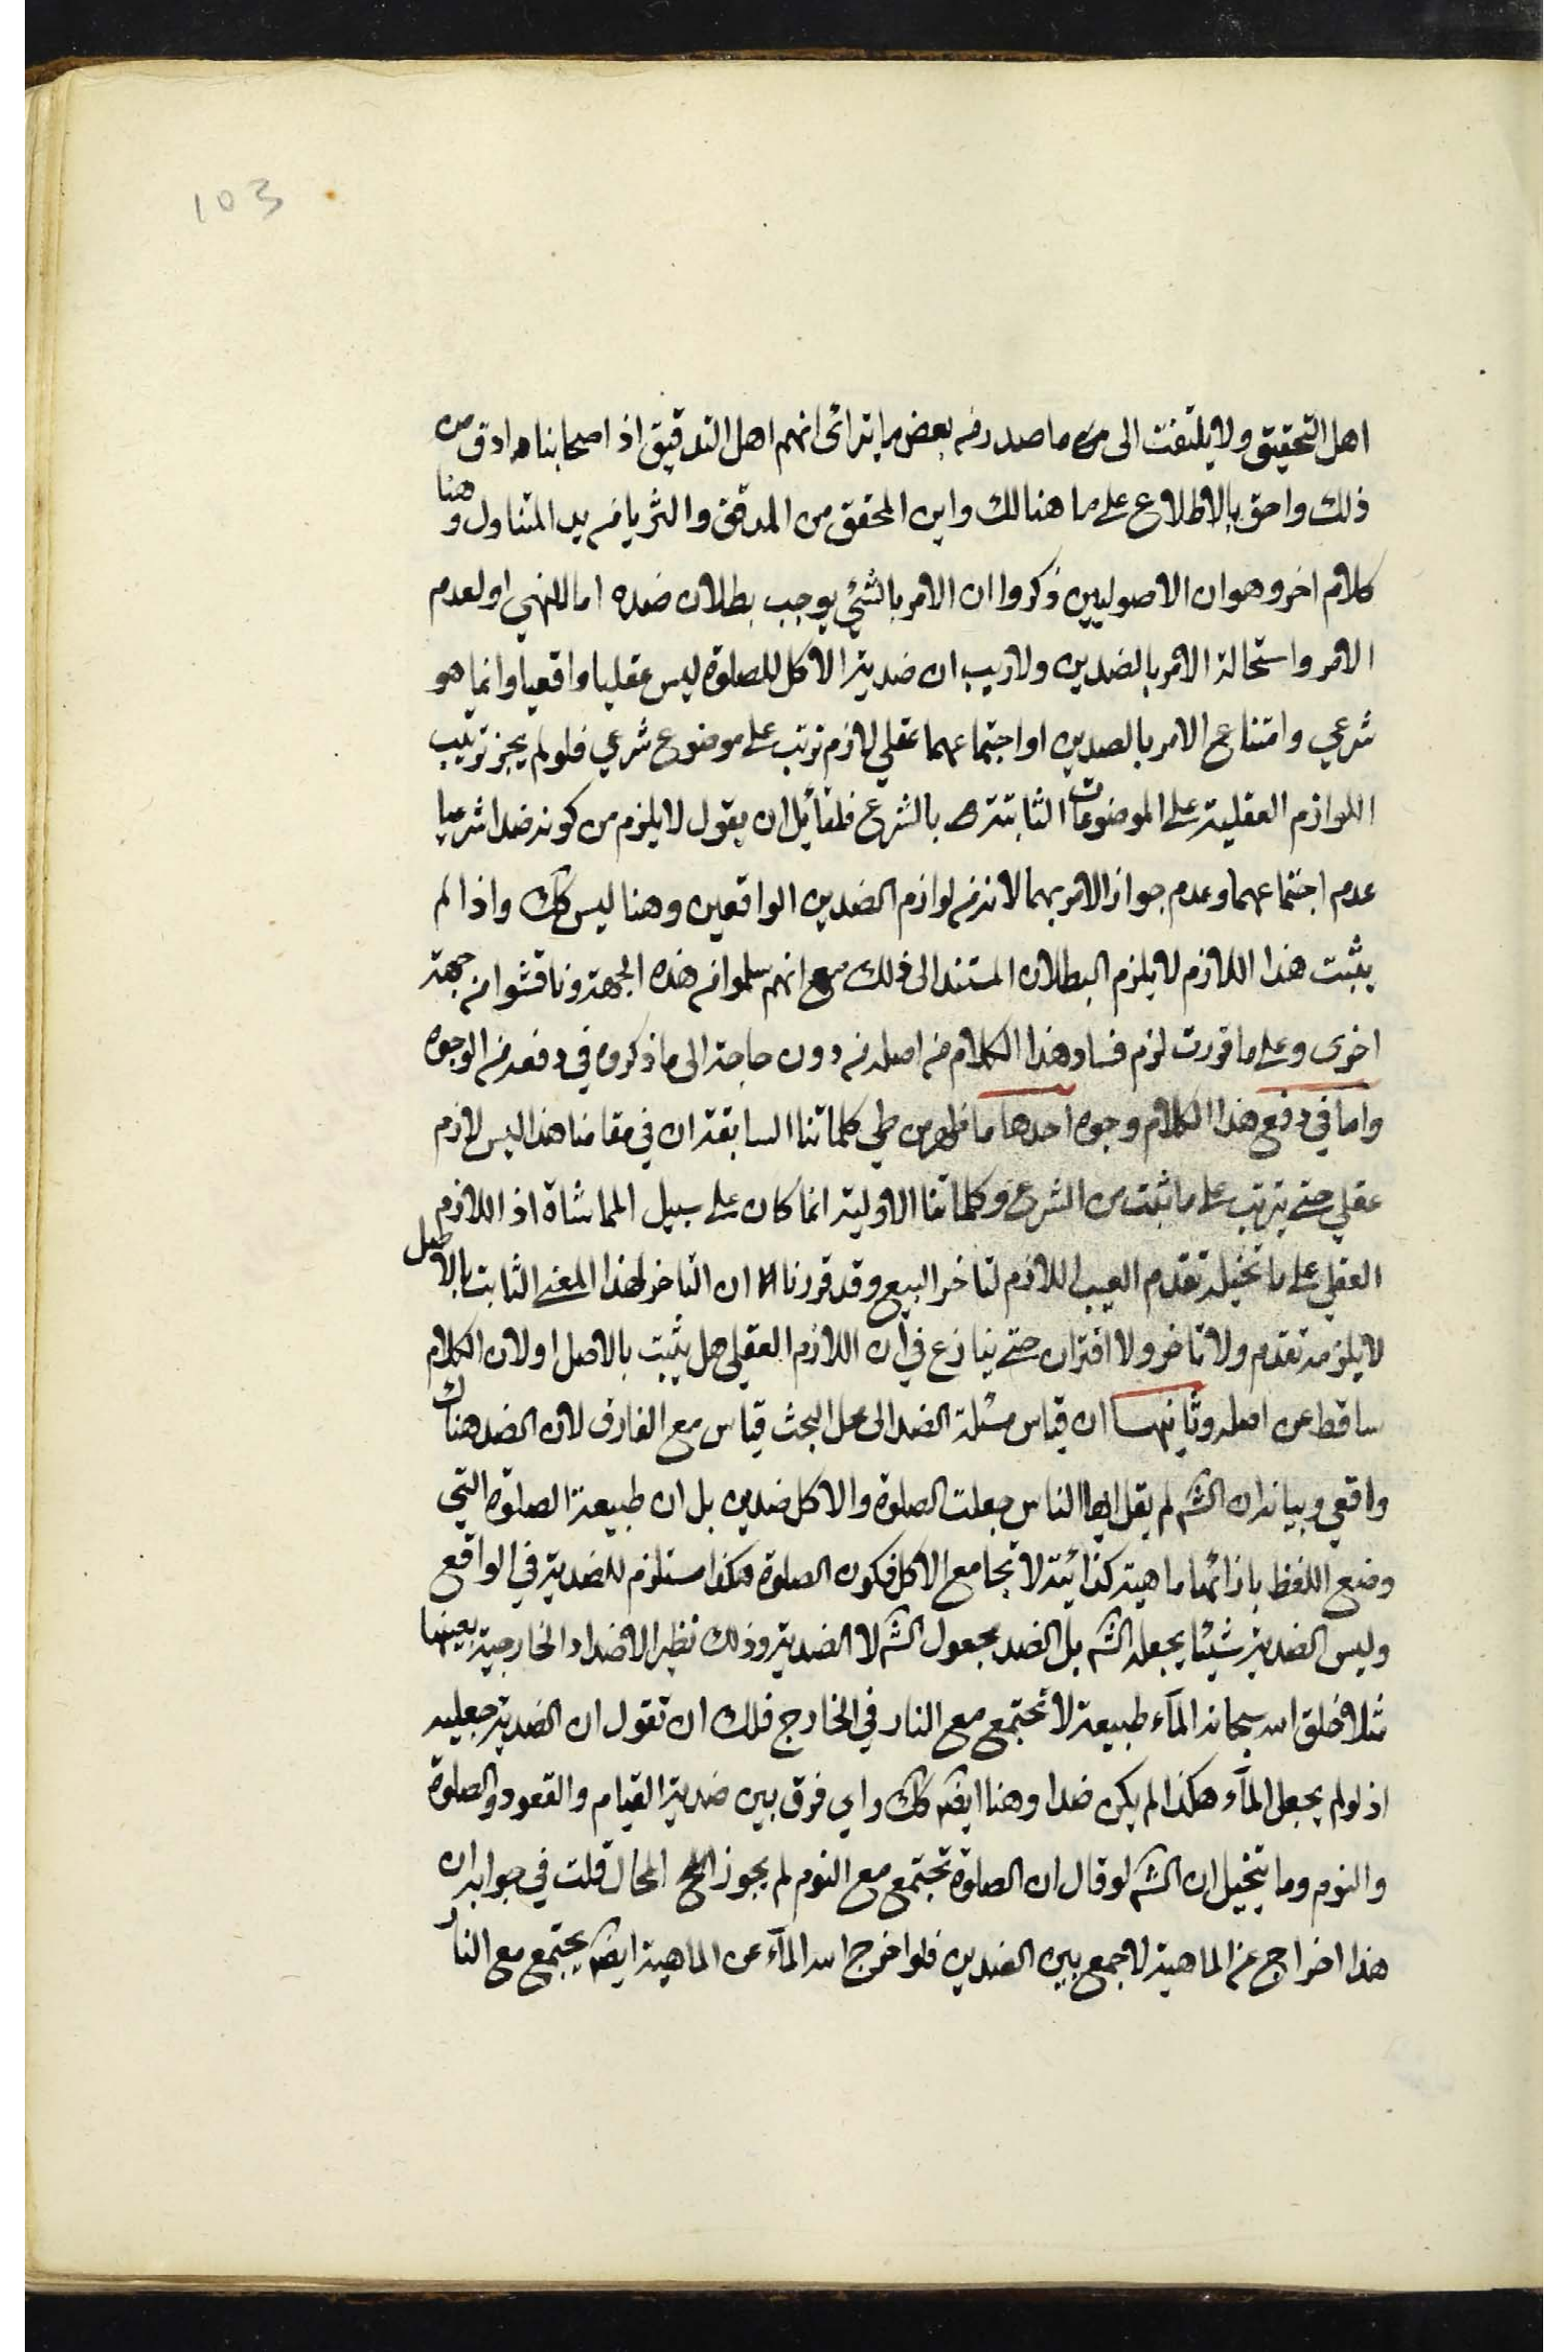 103
اهل التحقيق ولا يلتفت الى ما صدر من بعض ما يترائى انهم اهل التدقيق اذ اصحابنا ادق من
ذلك واحق بالاطلاع على ما هنالك واين المحقق من المدقق والثريا من يد المتناول وهنا
كلام اخر وهو ان الاصوليين ذكروا ان الامر بالشئ يوجب بطلان ضده اما للنهي او لعدم
الامر واستحالة الامر بالضدين ولا ريب ان ضدية الاكل للصلوة ليس عقليا واقعيا وانما هو
شرعي وامتناع الامر بالضدين او اجتماعهما عقلي لازم ترتب على موضوع شرعي فلو لم يجز ترتيب
اللوازم العقلية على الموضوعات الثابتة بالشرع فلقائل ان يقول لا يلزم من كونه ضدا شرعيا
عدم اجتماعهما وعدم جواز الامر بهما لانه من لوازم الضدين الواقعين وهنا ليس كك واذا لم
يثبت هذا اللازم لا يلزم البطلان المستند الى ذلك مع انهم سلموا من هذه الجهة وناقشوا من جهة
اخرى وعلى ما قررت لزم فساد هذا الكلام من اصله من دون حاجة الى ما ذكروه في دفعه من الوجوه
واما في دفع هذا الكلام وجوه احدها ما ظهر من طي كلماتنا السابقة ان في مقامنا هذا ليس لازم
عقلي حتى يترتب على ما ثبت من الشرع وكلماتنا الاولية انما كان على سبيل المماشاة اذ اللازم
العقلي على ما تخيله تقدم العيب اللازم لتاخر البيع وقد قررنا ان التاخر لهذا المعنى الثابت بالاصل
لا يلزمه تقدم ولا تاخر ولا اقتران حتى ينازع في ان اللازم العقلي هل يثبت بالاصل او لا لان الكلام
ساقط عن اصله وثانيها ان قياس مسئلة الضد الى محل البحث قياس مع الفارق لان الضد هناك
واقعي وبيانه ان الشم لم يقل ايها الناس جعلت الصلوة والاكل ضدين بل ان طبيعة الصلوة التي
وضع اللفظ بازائها ماهية كذائية لا تجامع الاكل فكون الصلوة هكذا مستلزم للضدية في الواقع
وليس الضدية شيئا يجعله الشم بل الضد مجعول الشم لا الضدية وذلك نظير الاضداد الخارجية بعينها
مثلا خلق الله سبحانه المآء طبيعة لا تجتمع مع النار في الخارج فلك ان تقول ان الضدية جعلية
اذ لو لم يجعل المآء هكذا لم يكن ضدا وهنا ايضم كك واي فرق بين ضدية القيام والقعود والصلوة
والنوم وما يتخيل ان الشم لو قال ان الصلوة تجتمع مع النوم لم يجوز المحال قلت في جوابه ان
هذا اخراج عن الماهية لا جمع بين الضدين فلو اخرج الله المآء عن الماهية ايضم يجتمع مع النار